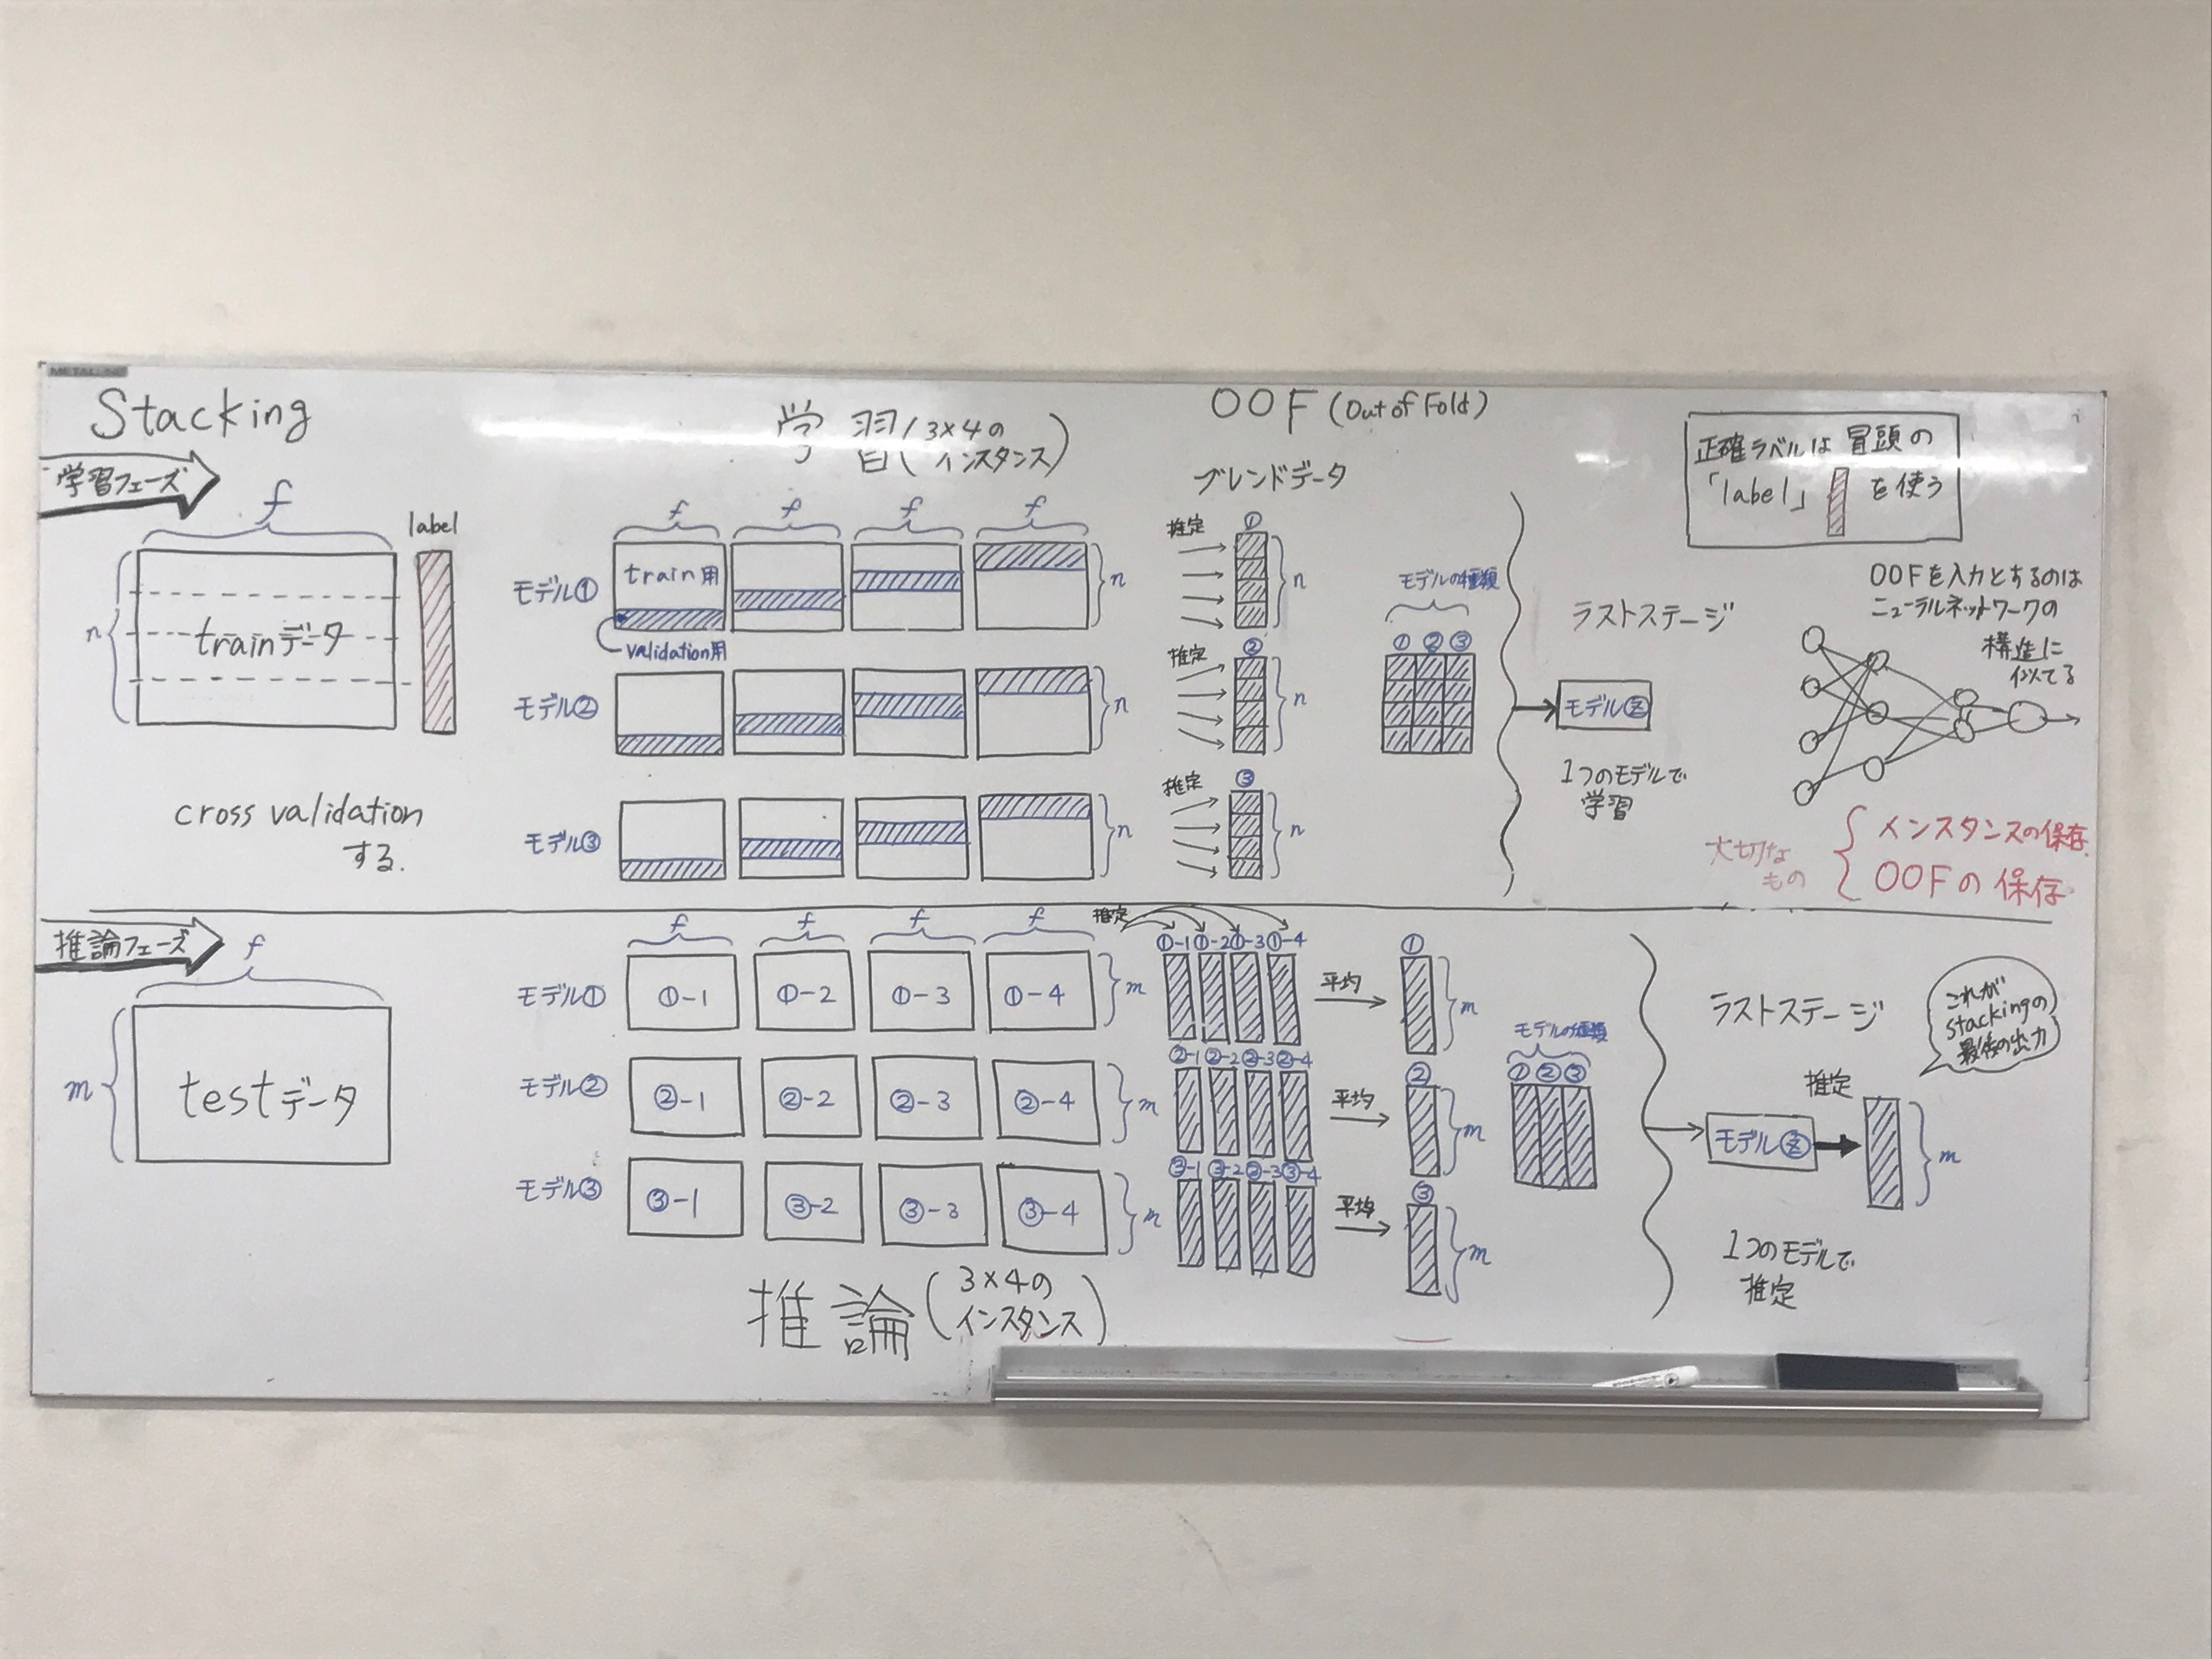 METALLINE
Stacking
学習フェーズ
f
label
n
trainデータ
cross validation
する.
学習(3×4の
インスタンス)
f f f f
モデル①
train用
validation用
n
モデル②
n
モデル③
n
OOF (Out of Fold)
ブレンドデータ
推定
①
n
推定
②
n
推定
③
n
モデルの種類
① ② ③
ラストステージ
モデル
1つのモデルで
学習
正確ラベルは冒頭の
「label」 を使う
OOFを入力とするのは
ニューラルネットワークの
構造に
似てる
大切な
もの
インスタンスの保存.
OOFの保存
推論フェーズ
f
m
testデータ
f f f f
モデル①
①-1 ①-2 ①-3 ①-4
m
モデル②
②-1 ②-2 ②-3 ②-4
m
モデル③
③-1 ③-2 ③-3 ③-4
m
推論(3×4の
インスタンス)
推定
①-1 ①-2 ①-3 ①-4
平均
①
m
②-1 ②-2 ②-3 ②-4
平均
②
m
③-1 ③-2 ③-3 ③-4
平均
③
m
モデルの種類
① ② ③
ラストステージ
モデル
推定
m
1つのモデルで
推定
これが
stackingの
最後の出力